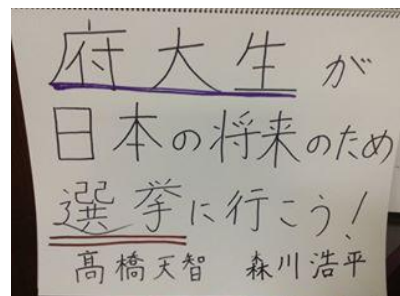 府大生が
日本の将来のため
選挙に行こう!
髙橋天智 森川浩平